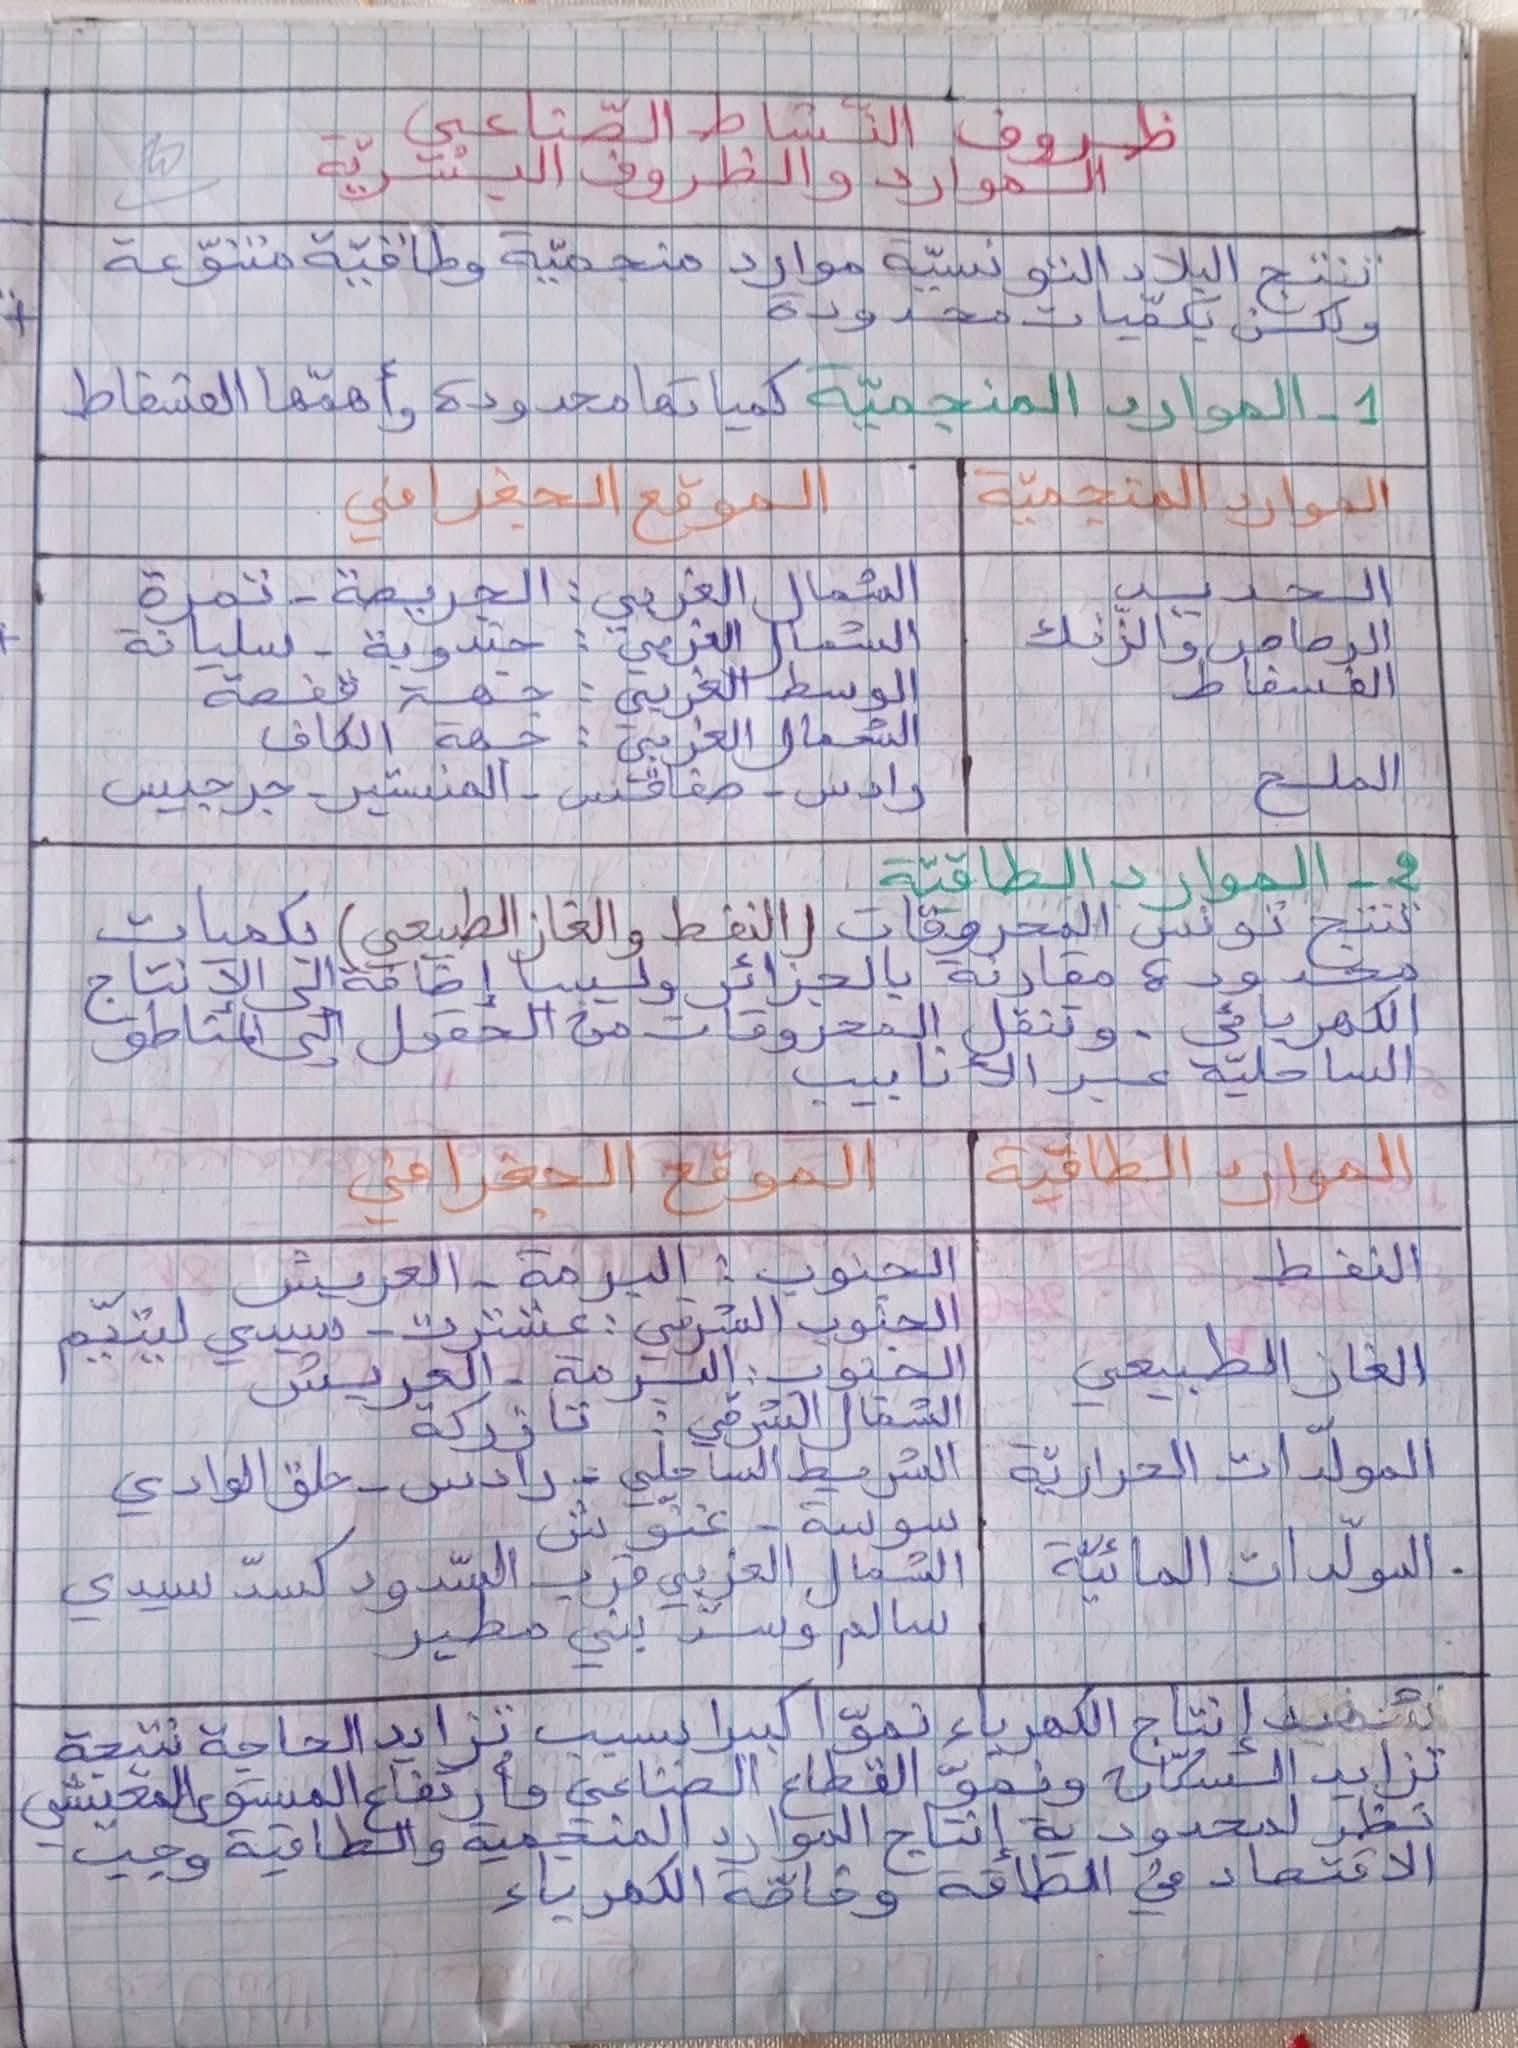 ظروف النّشاط الصّناعي
الموارد والظروف البشريّة
تنتج البلاد التونسيّة موارد منجميّة وطاقيّة متنوّعة
ولكن بكمّيات محدودة
1- الموارد المنجميّة كمياتها محدودة وأهمّها الفسفاط
الموارد المنجميّة الموقع الجغرافي
الحديد الشمال الغربي : الجريصة - تمرة
الرصاص والزّنك الشمال الغربي : جندوبة - سليانة
الفسفاط الوسط الغربي : جهة قفصة
الشمال الغربي : جهة الكاف
الملح رادس - صفاقس - المنستير - جرجيس
2- الموارد الطاقيّة
تنتج تونس المحروقات (النفط والغاز الطبيعي) بكميات
محدودة مقارنة بالجزائر وليبيا إضافة إلى الإنتاج
الكهربائي . وتنقل المحروقات من الحقول إلى المناطق
الساحليّة عبر الأنابيب
الموارد الطاقيّة الموقع الجغرافي
النفط الجنوب : البرمة - العريش
الجنوب الشرقي : عشترت - سيدي ليتيّم
الغاز الطبيعي الجنوب : البرمة - العريش
الشمال الشرقي : تازركة
المولّدات الحراريّة الشريط الساحلي : رادس - حلق الوادي
سوسة - غنّوش
. المولّدات المائيّة الشمال الغربي قرب السّدود كسدّ سيدي
سالم وسدّ بني مطير
إنتاج الكهرباء نموّا كبيرا بسبب تزايد الحاجة نتيجة
تزايد السكّان ونموّ القطاع الصناعي وارتفاع المستوى المعيشي
نظر لمحدودية إنتاج الموارد المنجمية والطاقية وجب
الاقتصاد في الطاقة وخاصّة الكهرباء